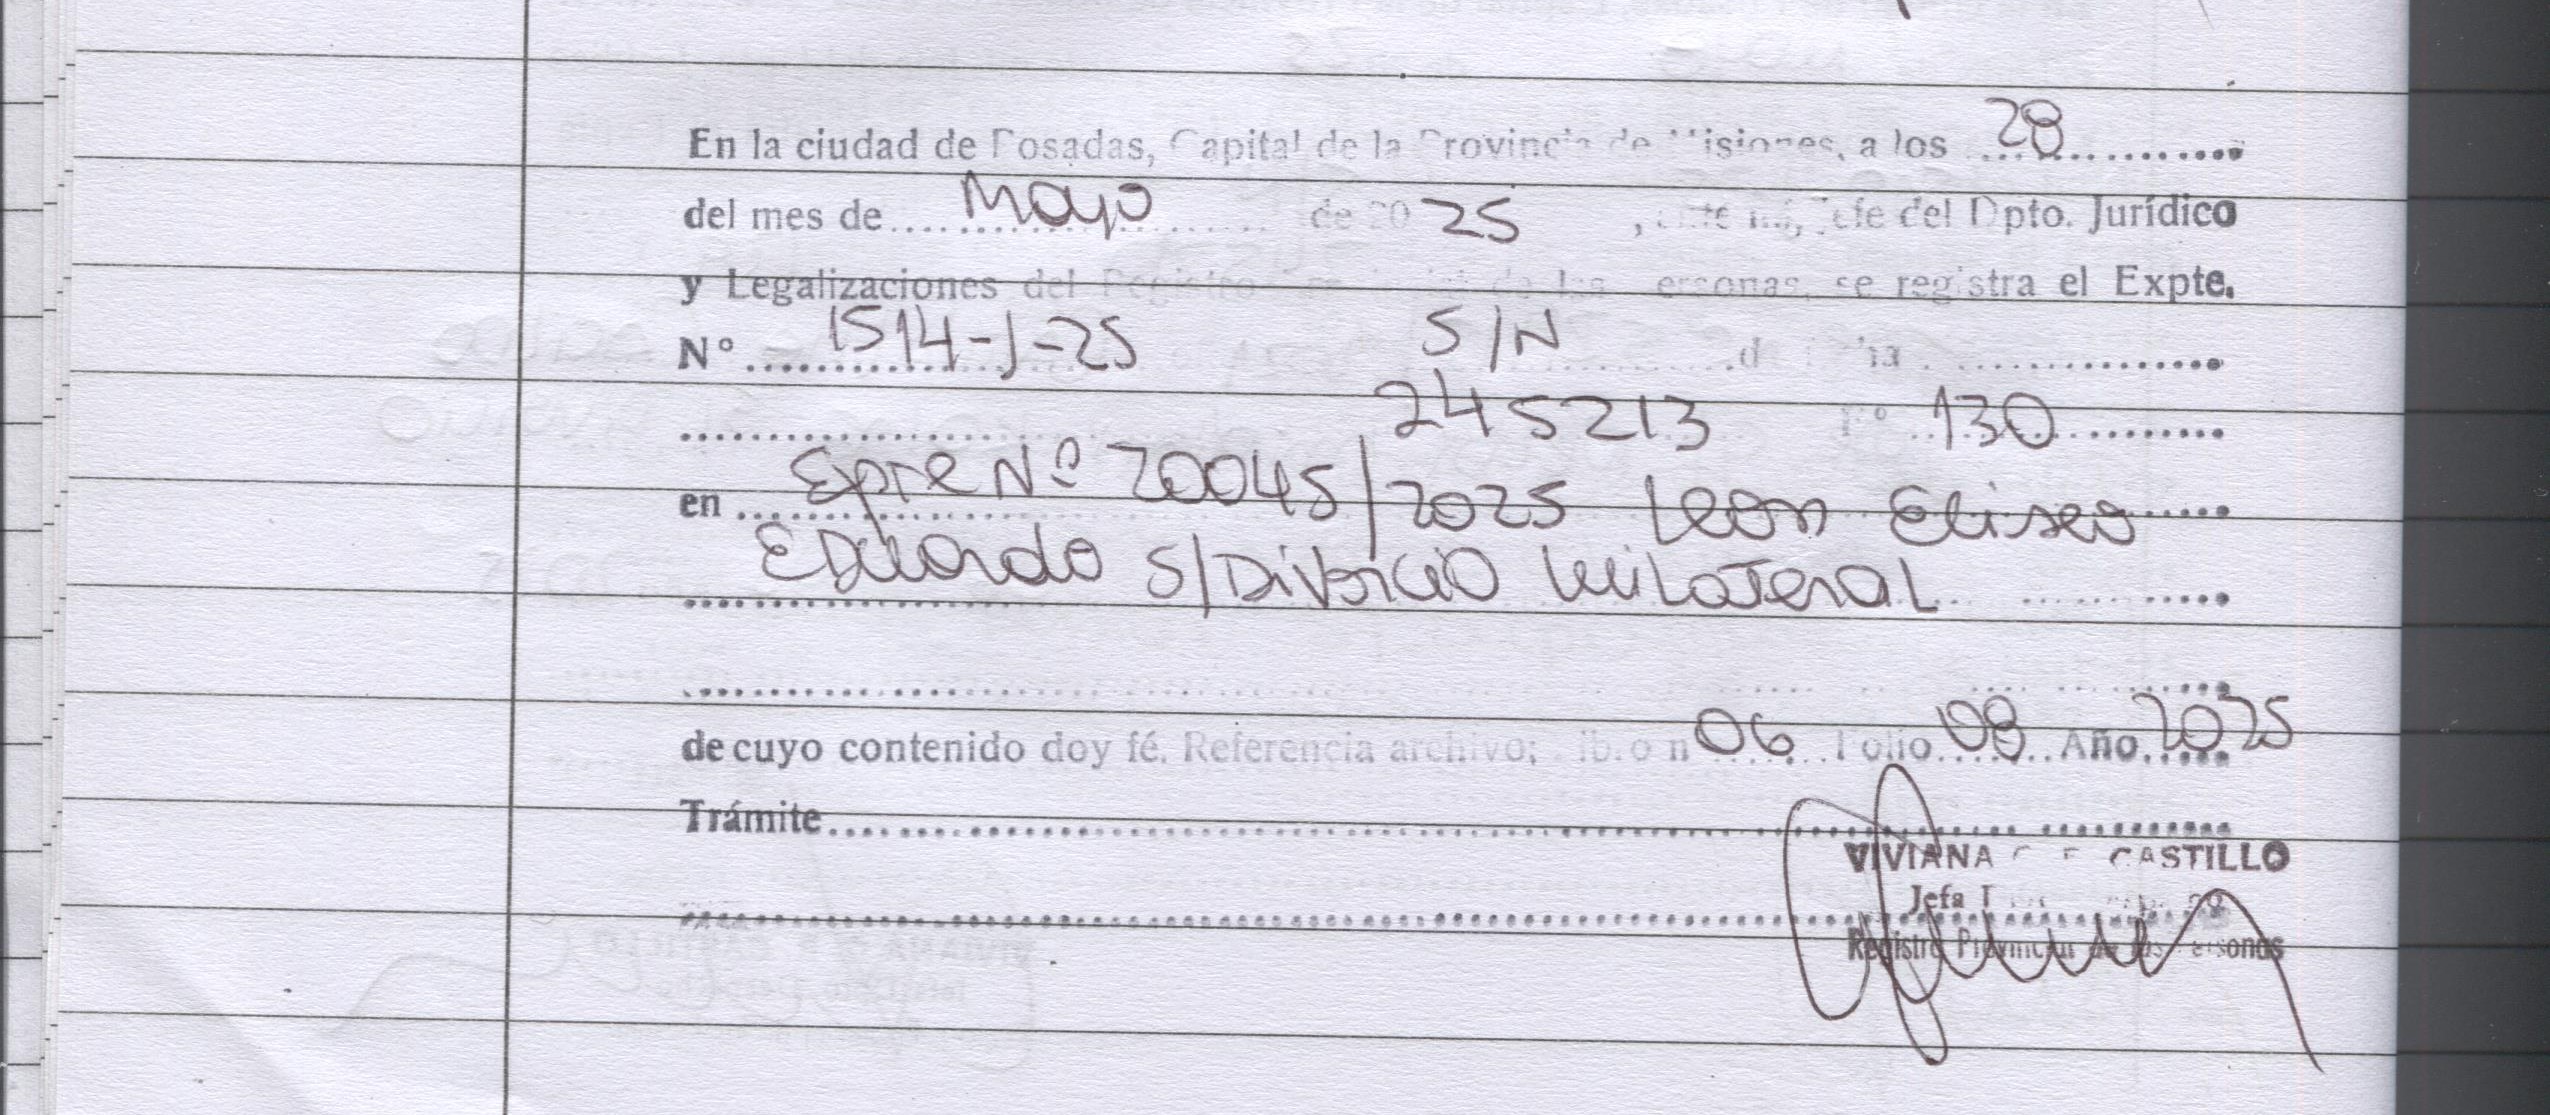 En la ciudad de Posadas, Capital de la Provincia de Misiones, a los 28
del mes de Mayo de 20 25 , ante mí, Jefe del Dpto. Jurídico
y Legalizaciones del Registro de las Personas, se registra el Expte.
N° 1514-J-25 S/N de
245213 N° 130
en Epte Nº 20045/2025 Leon Eliseo
Eduardo S/Divorcio unilateral
de cuyo contenido doy fé. Referencia archivo; Libro n 06 Folio 08 Año 2025
Trámite
VIVIANA CASTILLO
Jefa
Registro Provincial de las Personas